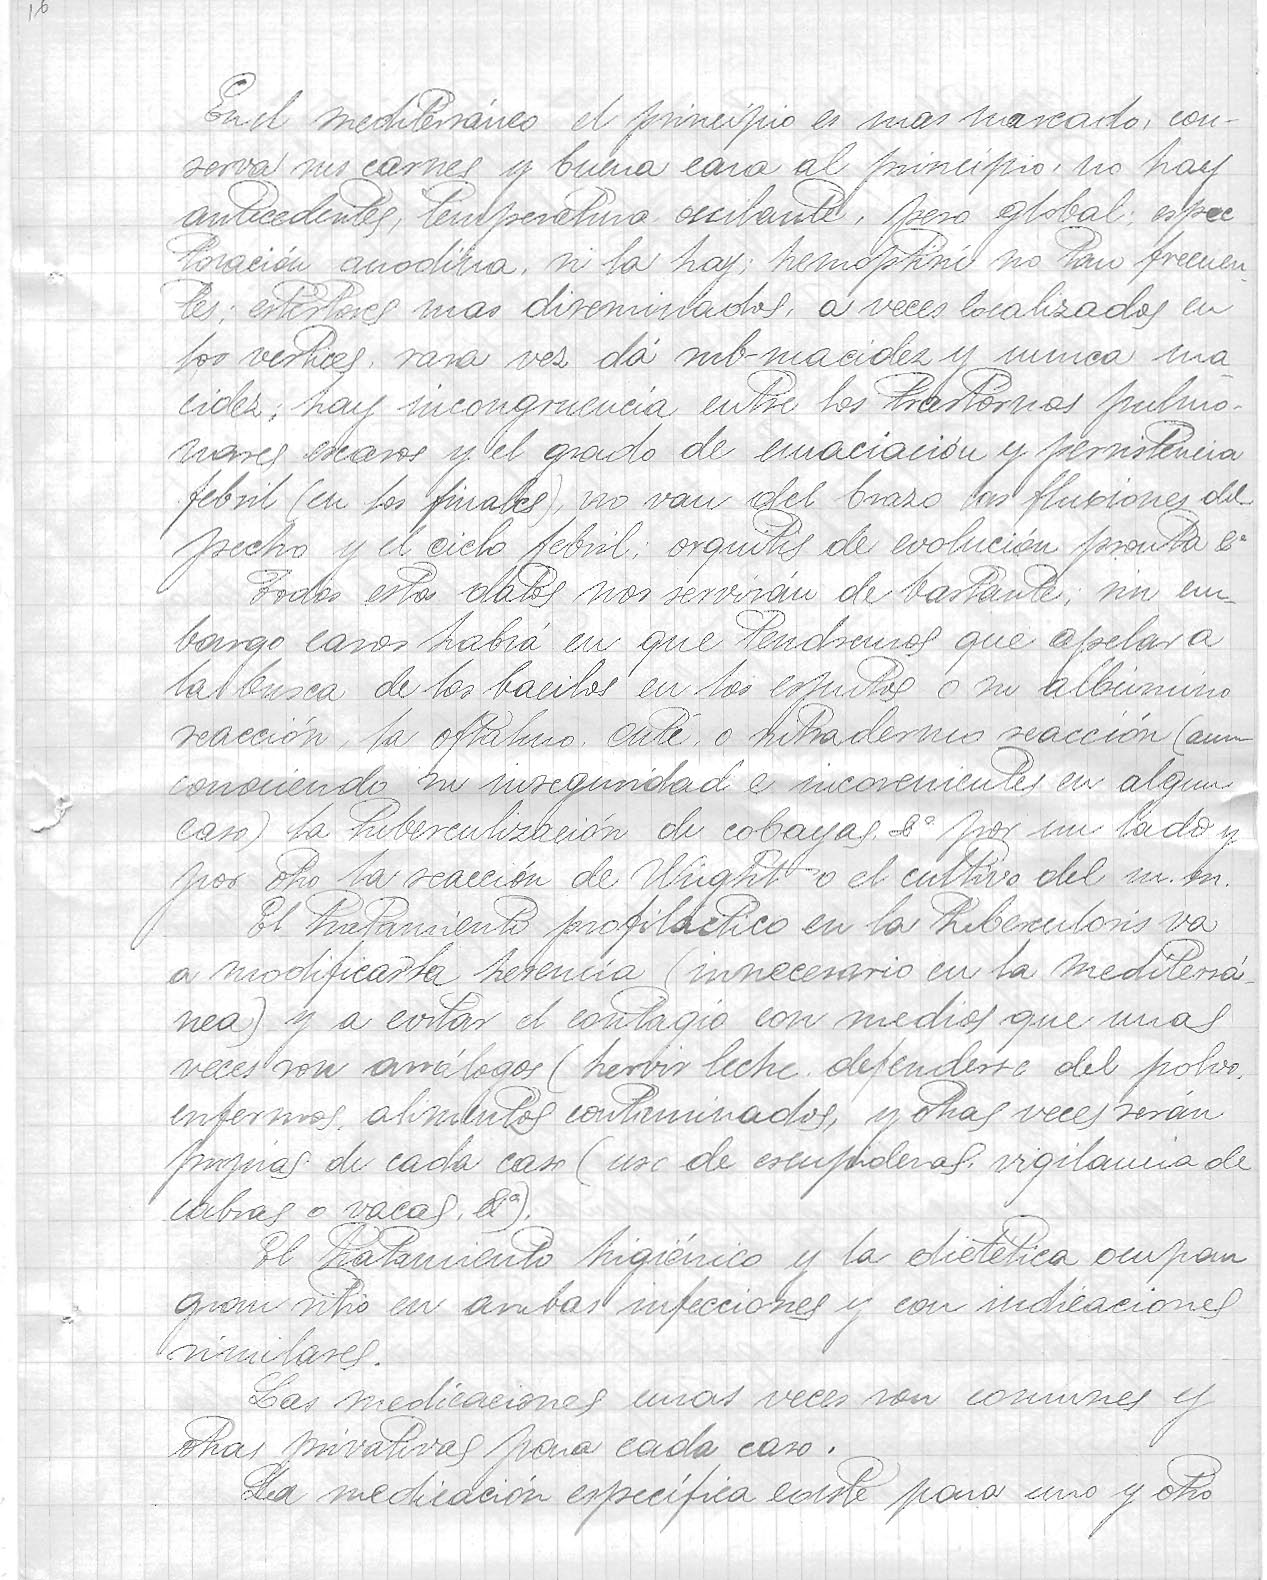 16
En el mediterráneo el principio es mas marcado, con-
serva sus carnes y buena cara al principio, no hay
antecedentes, temperatura oscilante, pero global; espec
toración anodina, si la hay; hemoptisis no tan frecuen-
tes; estertores mas diseminados, a veces localizados en
los vertices, rara vez dá sub-macidez y nunca ma
cidez; hay incongruencia entre los trastornos pulmo-
nares escasos y el grado de emaciación y persistencia
febril (en los finales), no van del brazo las fluxiones del
pecho y el ciclo febril; orquitis de evolución pronta &ª
Todos esto datos nos servirán de bastante; sin em-
bargo casos habrá en que tendremos que apelar a
la busca de los bacilos en los esputos o su albúmino
reacción, la oftalmo, cuti, o intradermo reacción (aun
conociendo su inseguridad e incovenientes en algun
caso) la tuberculización de cobayas, &ª por un lado y
por otro la reacción de Wright o el cultivo del m. m.
El tratamiento profilactico en la tuberculosis va
a modificar la herencia (innecesario en la mediterrá-
nea) y a evitar el contagio con medios que unas
veces son análogos (hervir leche, defenderse del polvo,
enfermos, alimentos contaminados, y otras veces serán
propias de cada caso (uso de escupideras, vigilancia de
cabras o vacas, &ª).
El tratamiento higiénico y la dietetica ocupan
gran sitio en ambas infecciones y con indicaciones
similares.
Las medicaciones unas veces son comunes y
otras privativas para cada caso.
La medicación específica existe para uno y otro